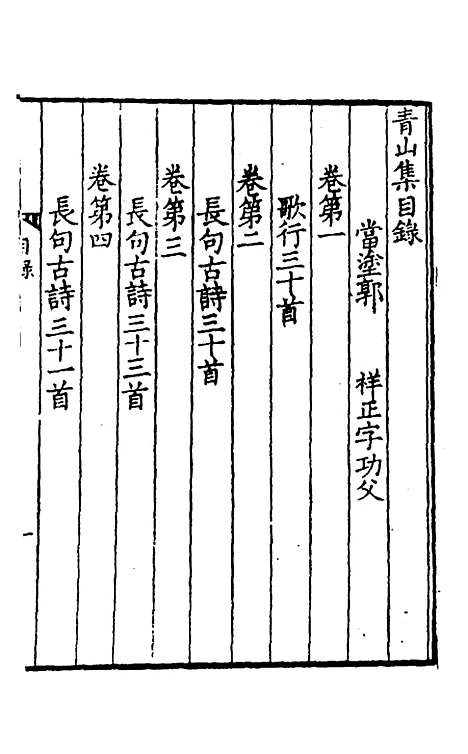 青山集目錄
當塗郭　祥正字功父
卷第一
歌行三十首
卷第二
長句古詩三十首
卷第三
長句古詩三十三首
卷第四
長句古詩三十一首
目錄
一